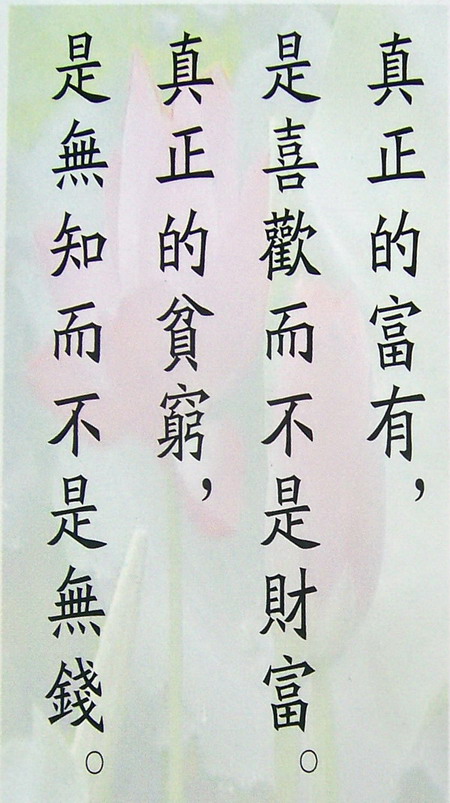 真正的富有，
是喜歡而不是財富。
真正的貧窮，
是無知而不是無錢。